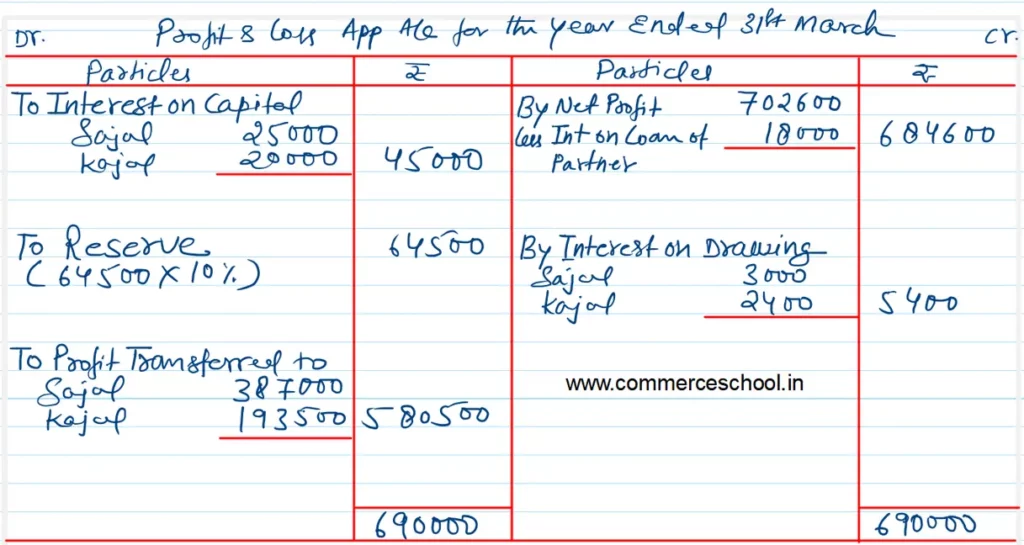 Dr. Profit & Loss App A/c for the year Ended 31st March Cr.
Particles ₹ Particles ₹
To Interest on Capital By Net Profit 702600
Sajal 25000 Less Int on Loan of 18000 684600
Kajal 20000 45000 Partner
To Reserve 64500 By Interest on Drawing
(64500 X 10%) Sajal 3000
Kajal 2400 5400
To Profit Transferred to
Sajal 387000 www.commerceschool.in
Kajal 193500 580500
690000 690000